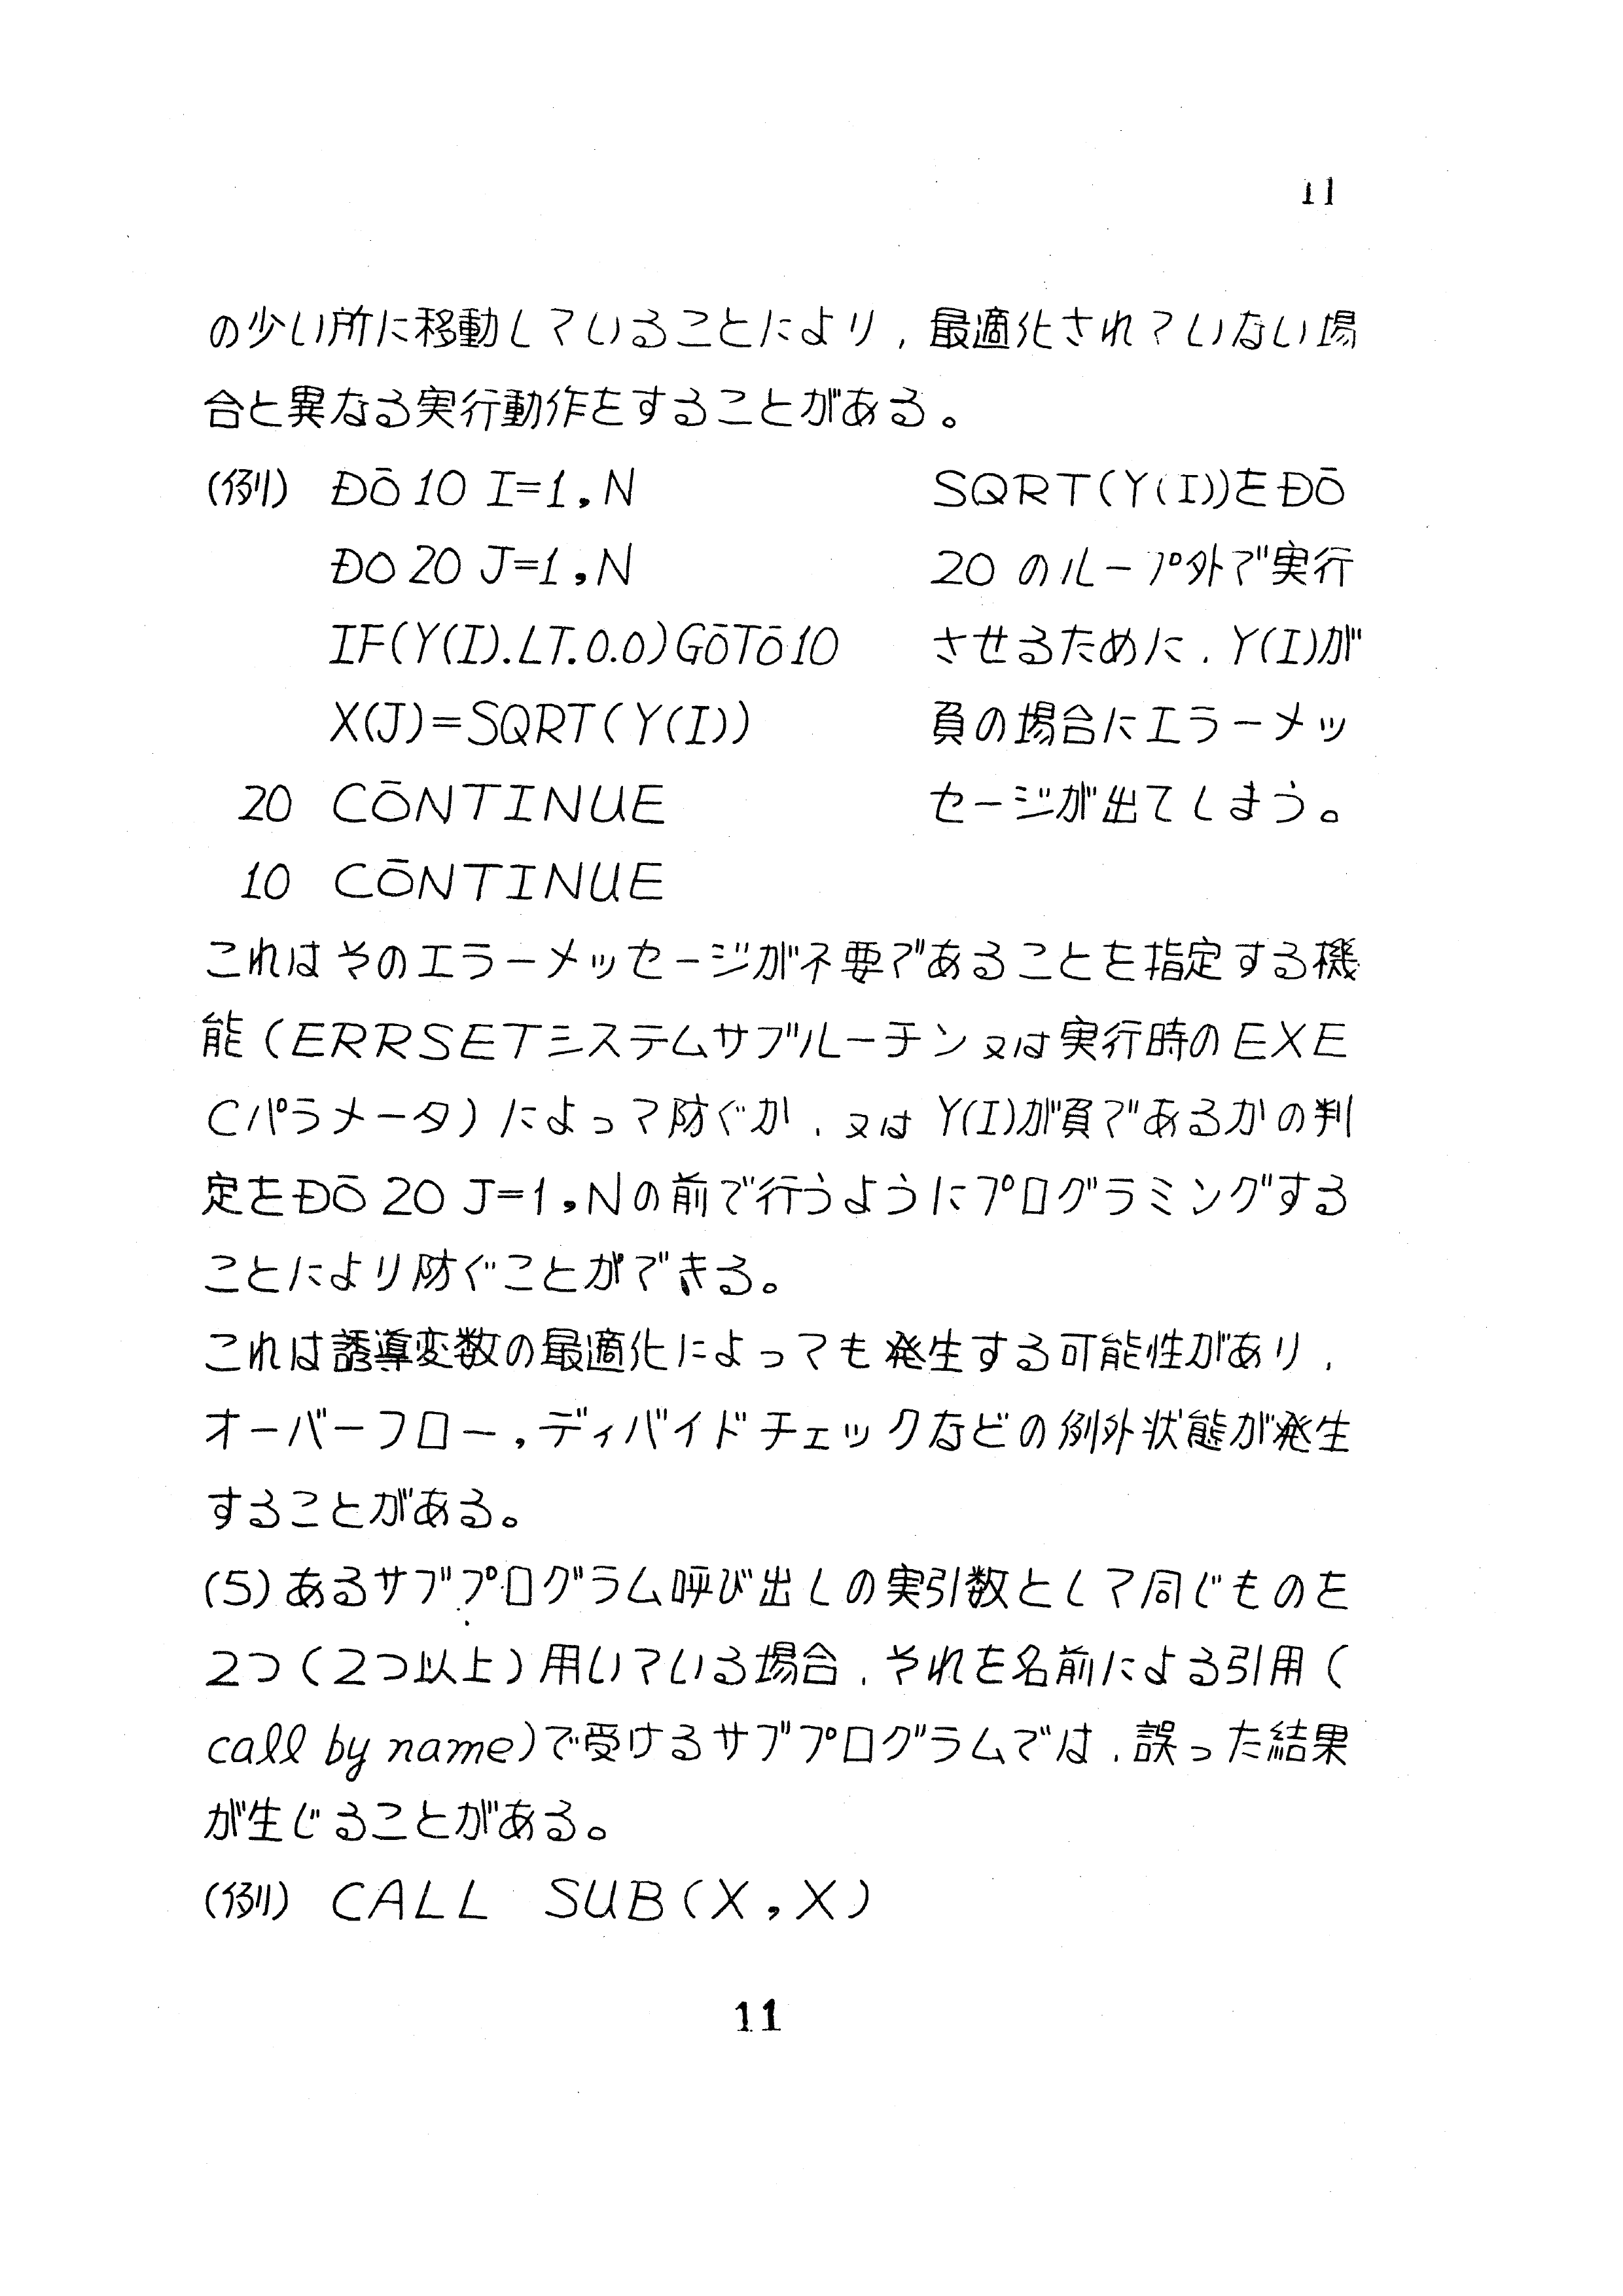 11
の少い所に移動していることにより,最適化されていない場
合と異なる実行動作をすることがある。
(例) ĐŌ 10 I=1,N
ĐO 20 J=1,N
IF(Y(I).LT.0.0)GŌTŌ10
X(J)=SQRT(Y(I))
20 CŌNTINUE
10 CŌNTINUE
SQRT(Y(I))をĐŌ
20 のループ外で実行
させるために,Y(I)が
負の場合にエラーメッ
セージが出てしまう。
これはそのエラーメッセージが不要であることを指定する機
能(ERRSETシステムサブルーチン又は実行時のEXE
Cパラメータ)によって防ぐか,又はY(I)が負であるかの判
定をĐŌ 20 J=1,Nの前で行うようにプログラミングする
ことにより防ぐことができる。
これは誘導変数の最適化によっても発生する可能性があり,
オーバーフロー,ディバイドチェックなどの例外状態が発生
することがある。
(5)あるサブプログラム呼び出しの実引数として同じものを
2つ(2つ以上)用いている場合,それを名前による引用(
call by name)で受けるサブプログラムでは,誤った結果
が生じることがある。
(例) CALL SUB(X,X)
11